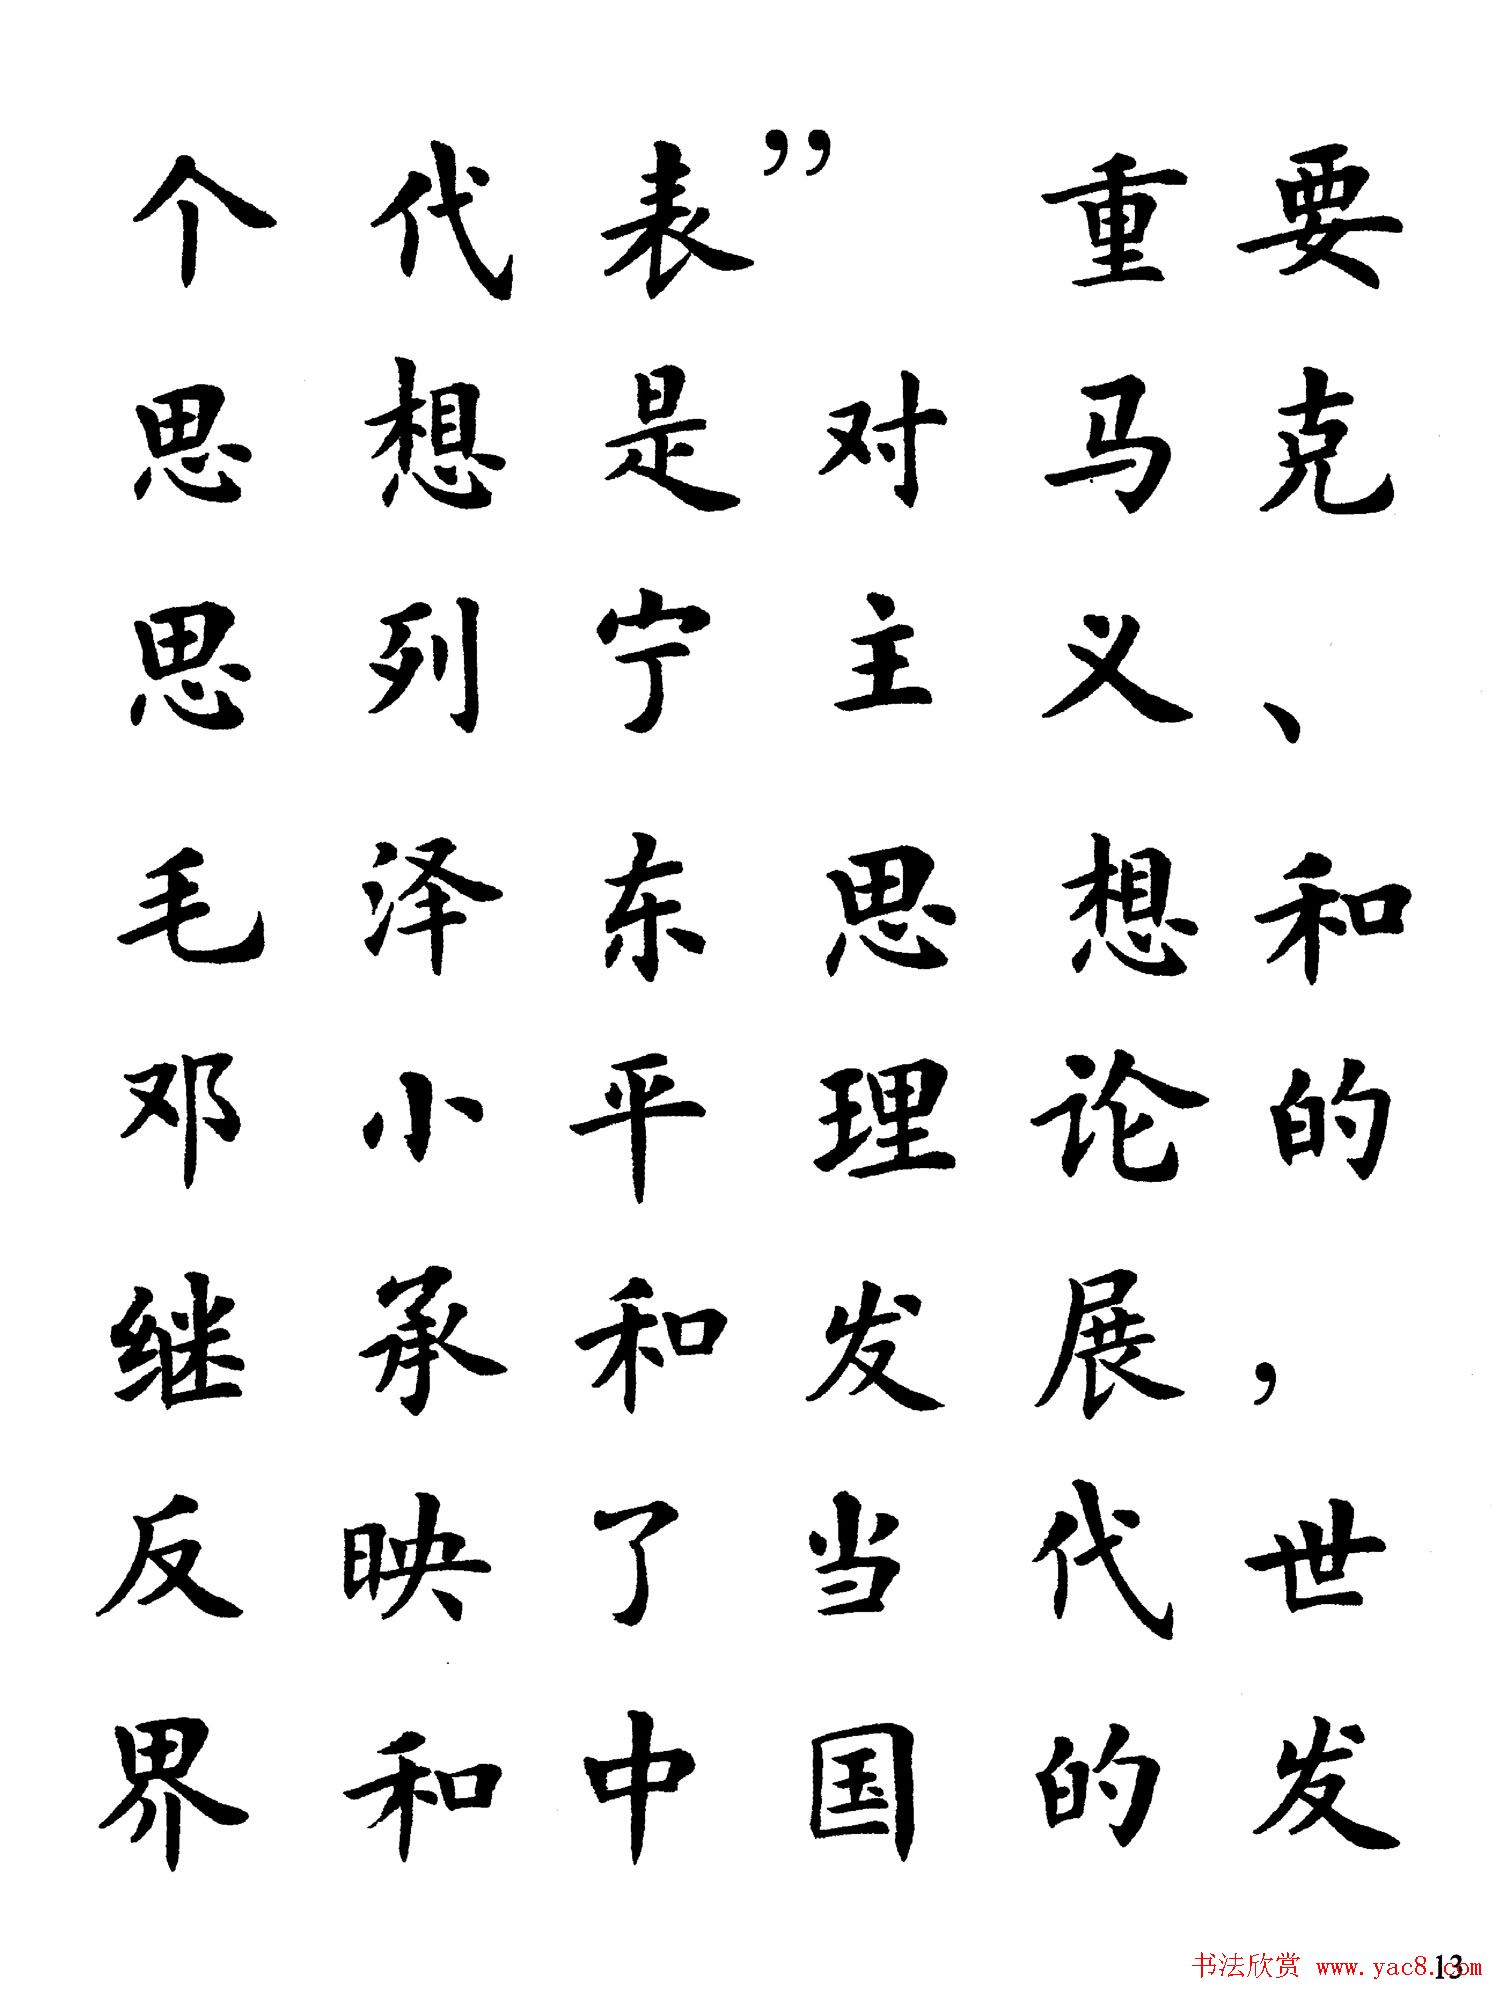 个代表”重要
思想是对马克
思列宁主义、
毛泽东思想和
邓小平理论的
继承和发展，
反映了当代世
界和中国的发
书法欣赏 www.yac8.com
13